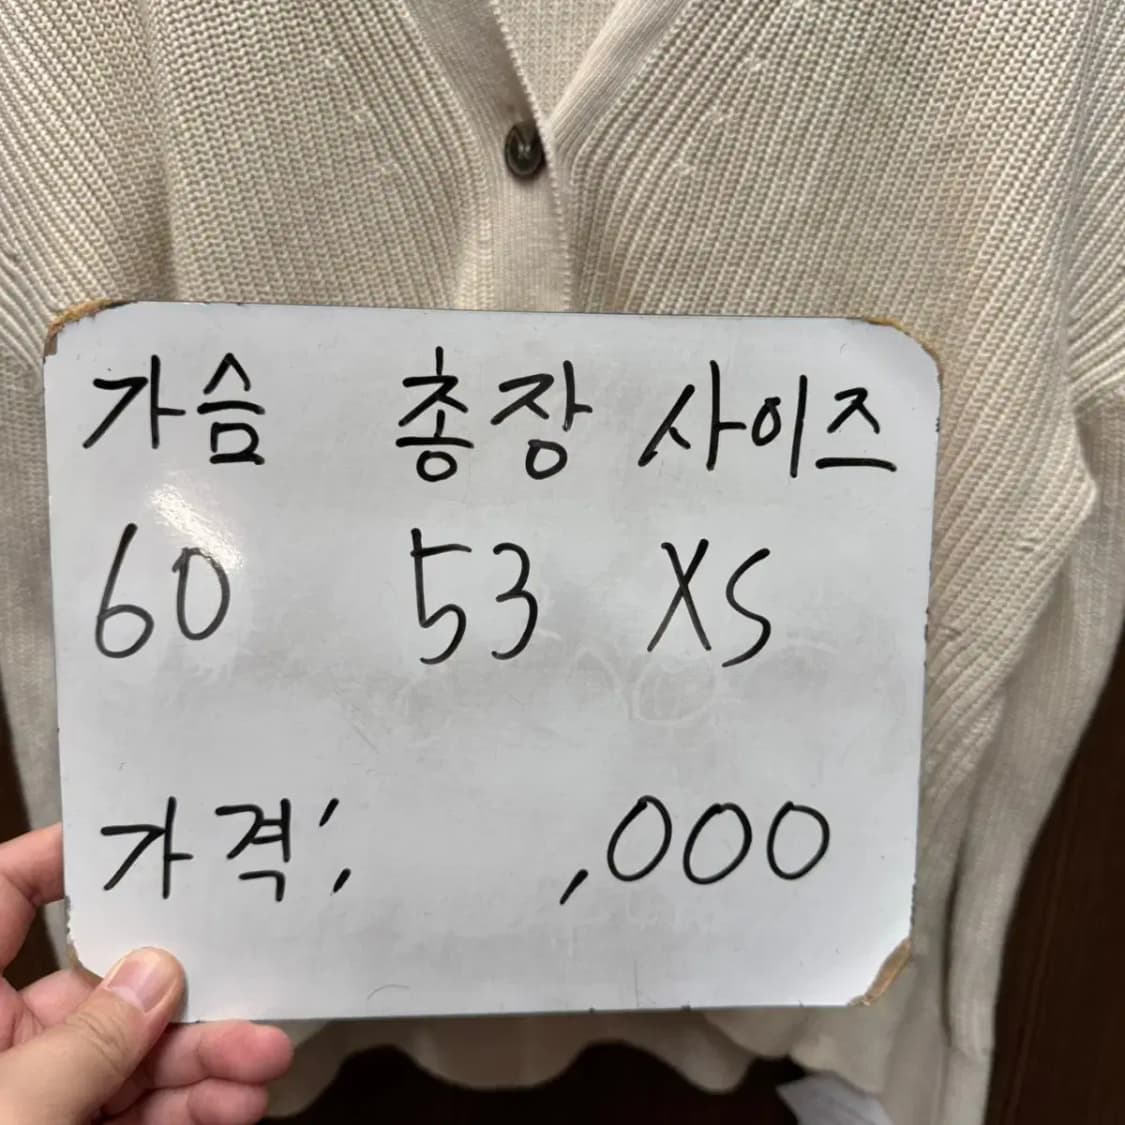 가슴 총장 사이즈
60 53 XS
가격: ,000